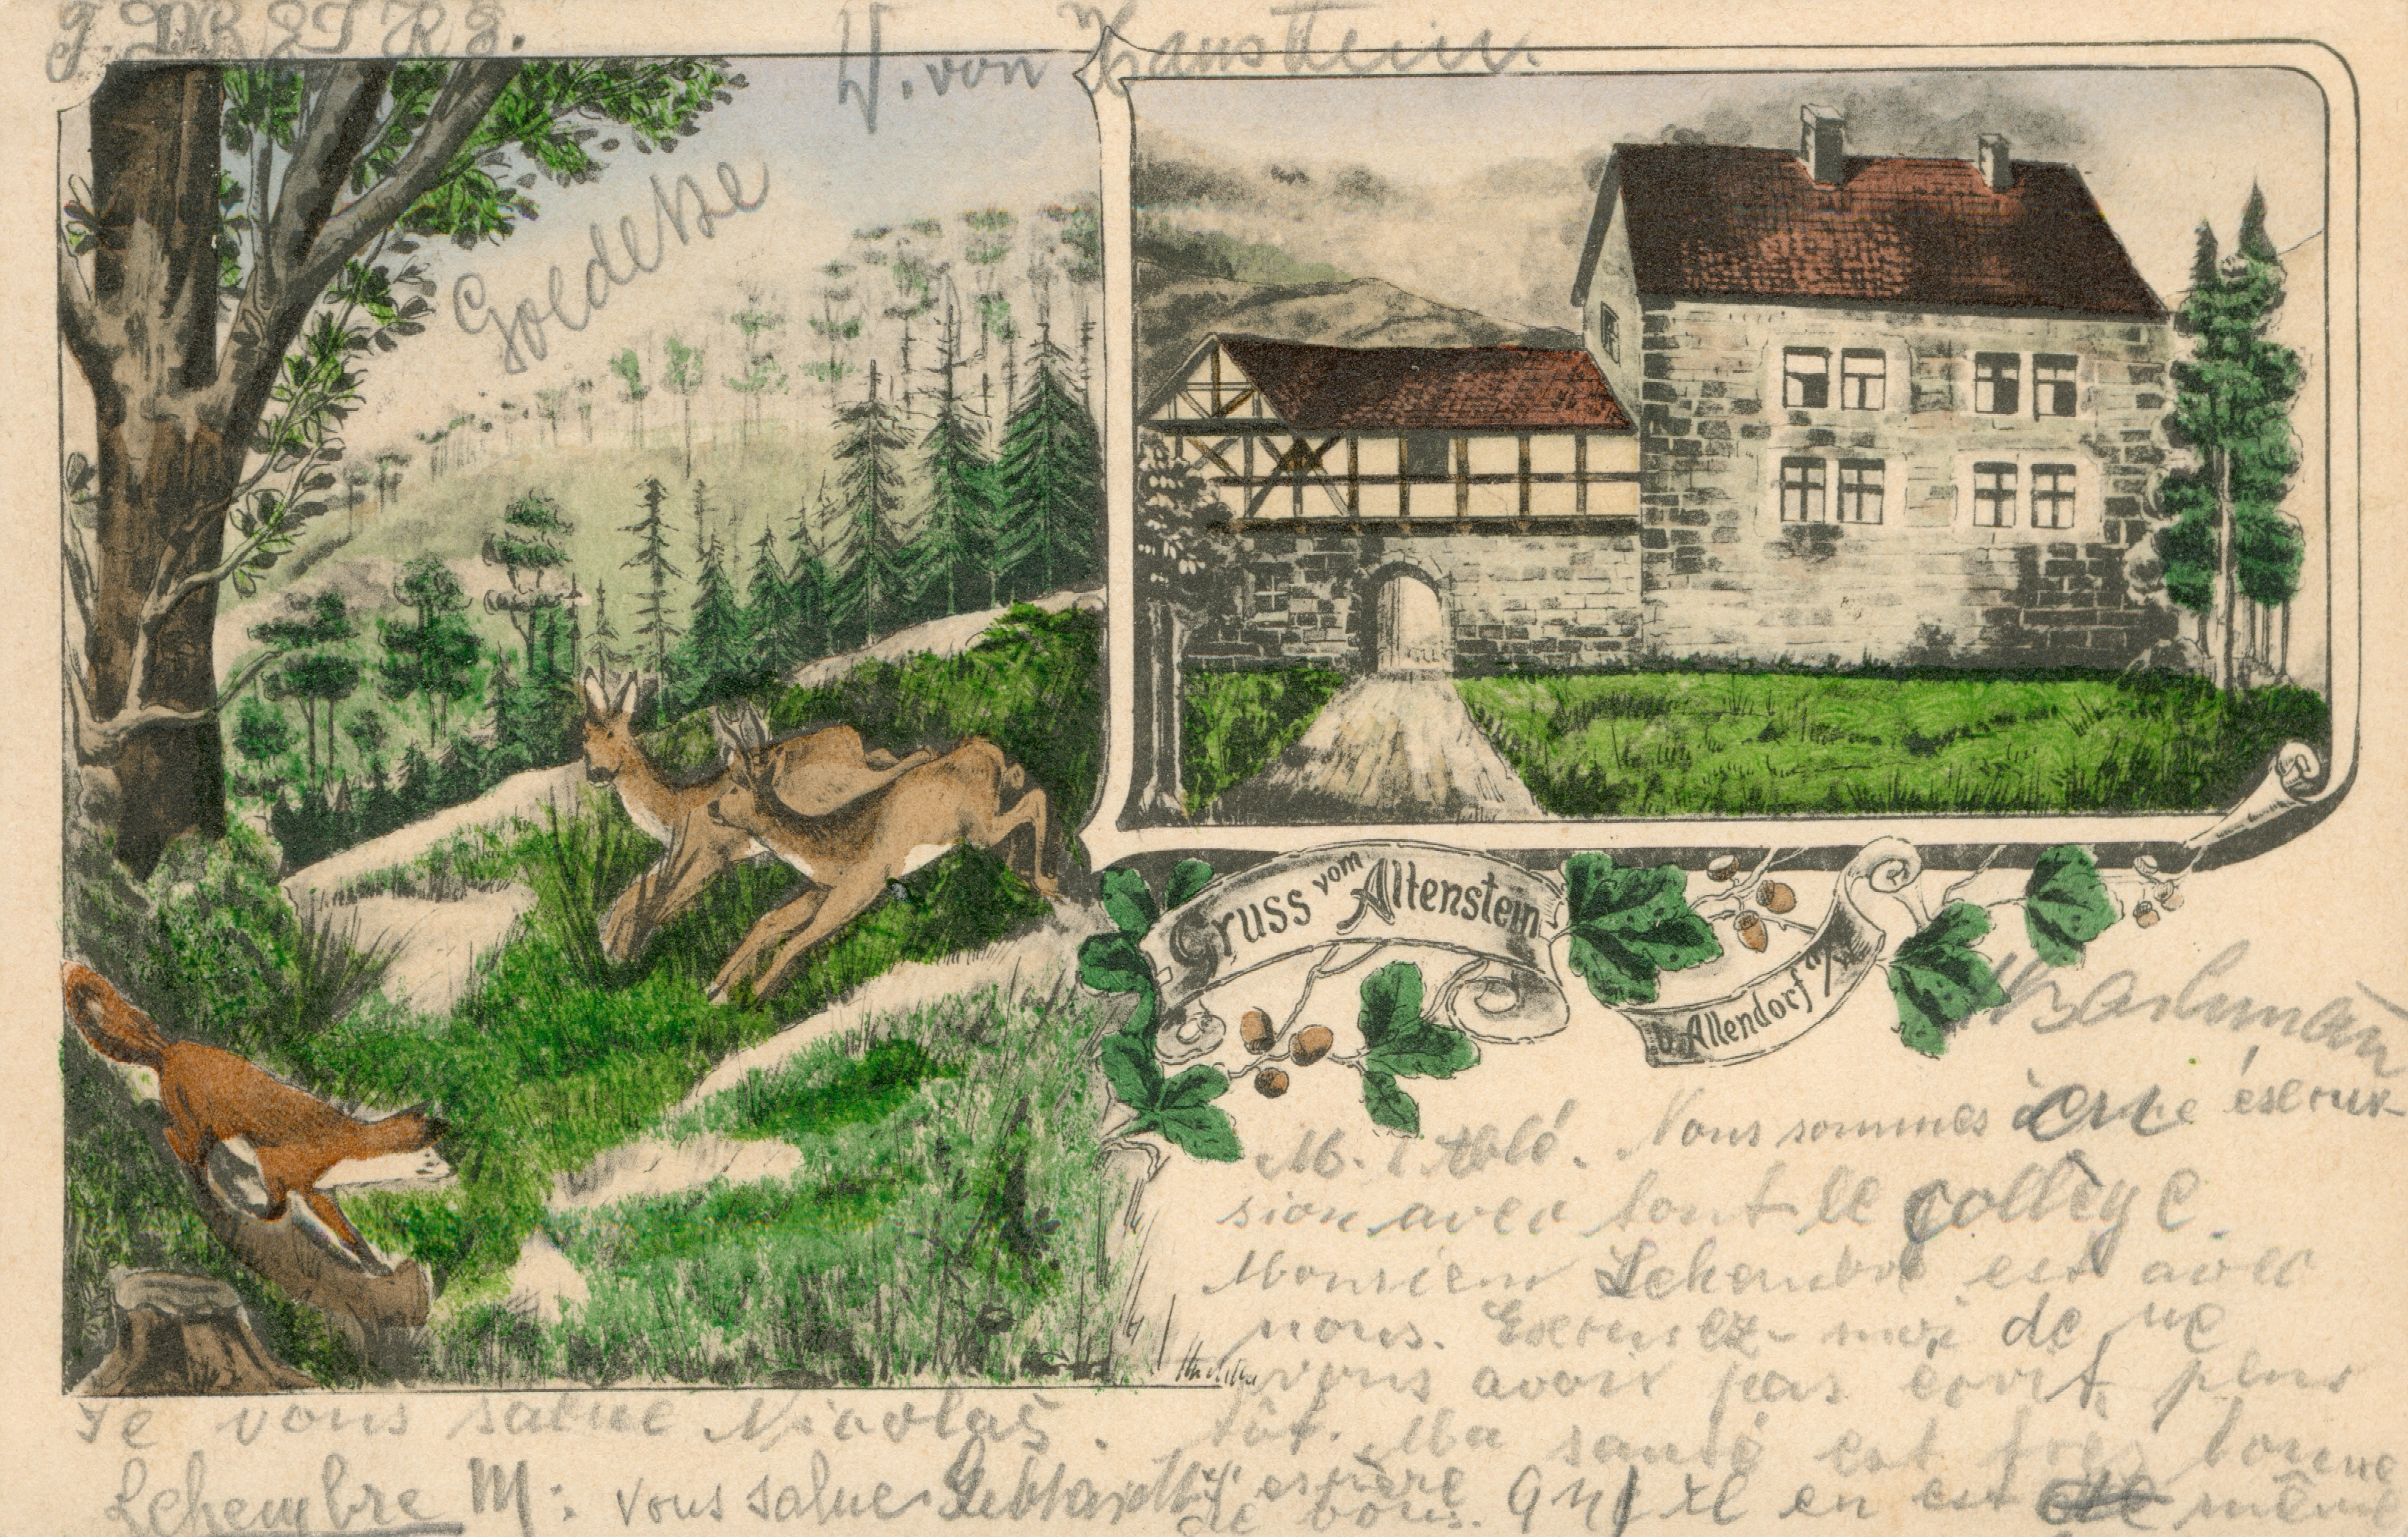 W. von Hanstein.
Goedecke
Gruss vom Altenstein
b. Allendorf a/W.
M. l'Abbé. Vous sommes à une éscour-
sion avec tout le collège.
Monsieur Lehembre est avec
nous. Excusez-moi de ne
vous avoir pas écrit plus
tôt. Ma santé est très bonne
J'espère qu'il en est de même
de vous.
Je vous salue Nicolas.
Lehembre M: vous salue